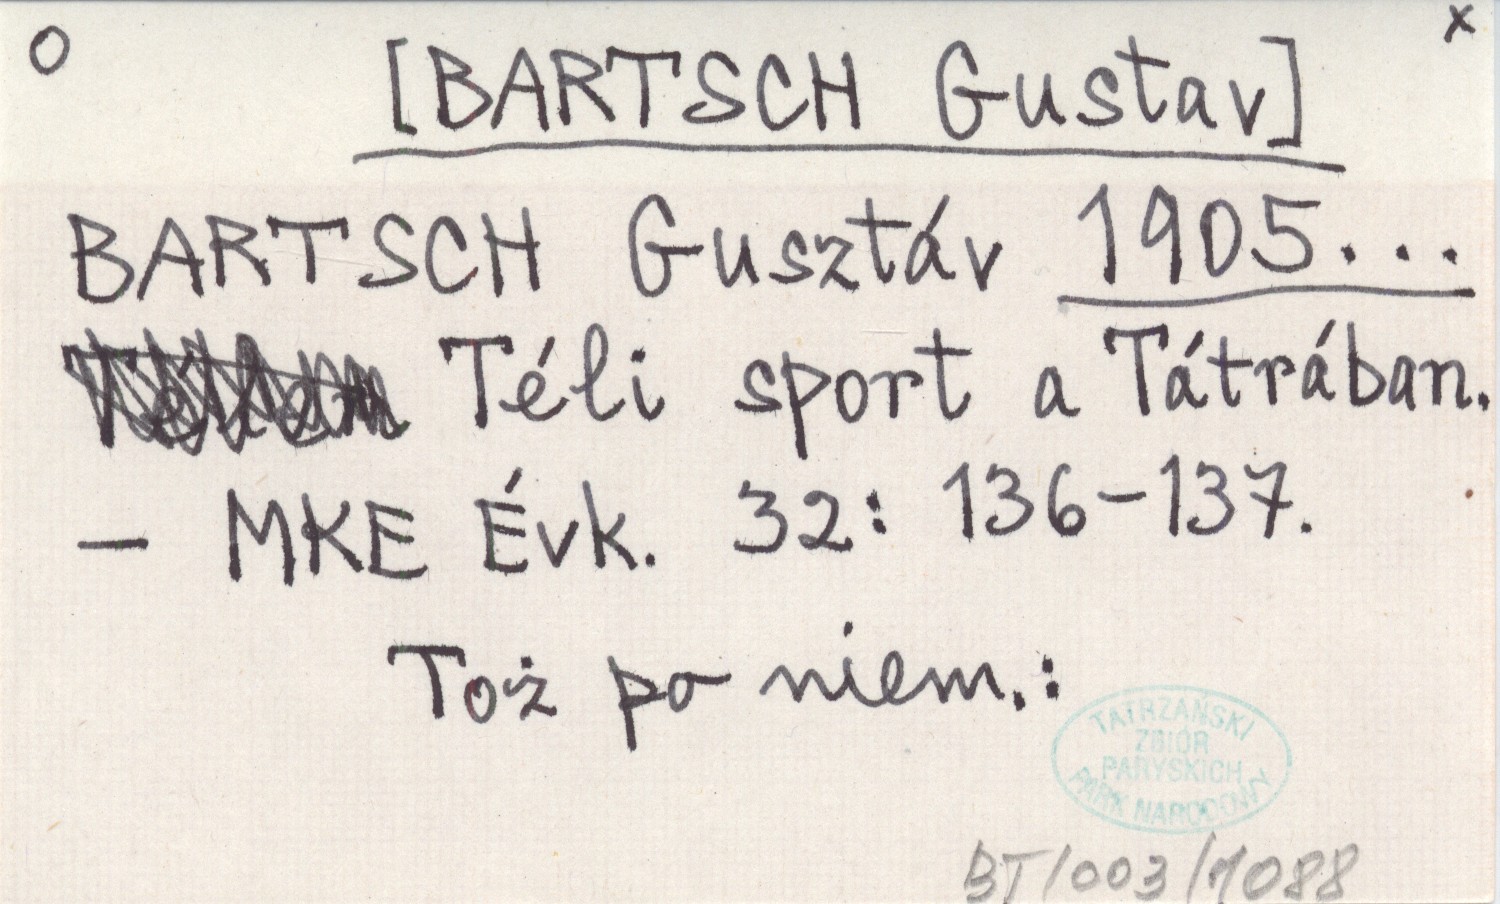 O x
[BARTSCH Gustav]
BARTSCH Gusztáv 1905...
Téli sport a Tátrában.
— MKE Évk. 32: 136-137.
Toż po niem.:
TATRZAŃSKI
ZBIÓR
PARYSKICH
PARK NARODOWY
BT/003/1088